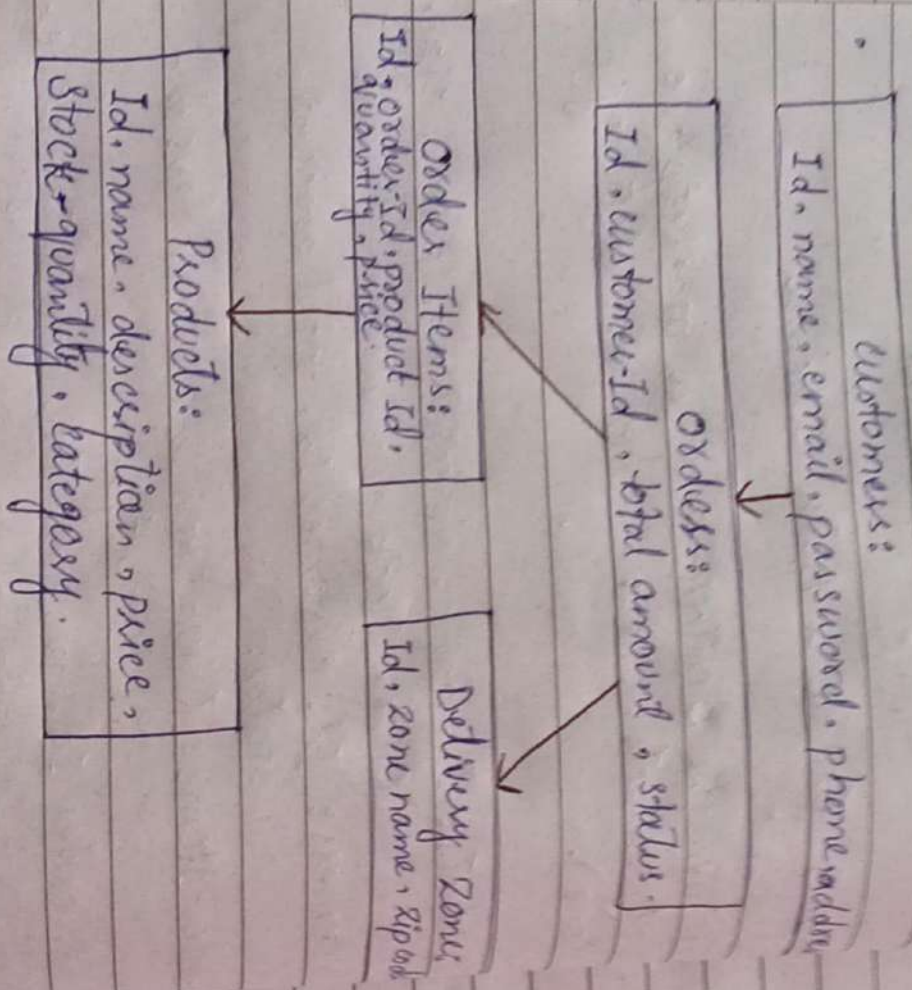 Customers:
Id, name, email, password, phone, addre
Orders:
Id, customer-Id, total amount, status.
Order Items:
Id, order-Id, product Id,
quantity, price.
Delivery Zones
Id, zone name, zipcod
Products:
Id, name, description, price,
Stock-quantity, Category.